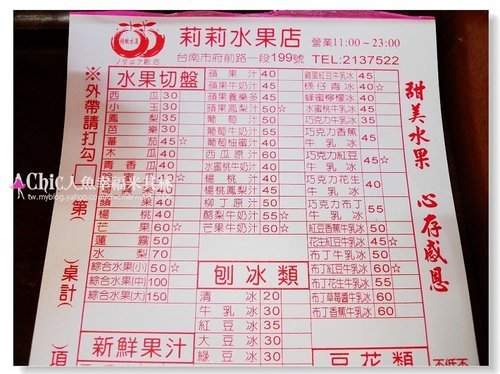 莉莉水果店
營業11:00~23:00
1947創店
台南市府前路一段199號 TEL:2137522
※外帶請打勾
第
桌
計
項
水果切盤
西瓜 30
小玉 30
鳳梨 35
芭樂 30
蕃茄 45☆
木瓜 40
青香瓜
楊桃 40
芒果 60☆
蓮霧 50
水梨 70
綜合水果(小) 50☆
綜合水果(中) 100
綜合水果(大) 150
新鮮果汁
蘋果汁 40
蘋果牛奶汁 45
蘋果養樂多 45
蘋果鳳梨汁 50☆
葡萄汁 50
葡萄牛奶汁 55
葡萄柚蜜汁 40
西瓜原汁 60
水蜜桃牛奶汁
楊桃汁
楊桃鳳梨汁 45
柳丁原汁 50
酪梨牛奶汁 60☆
芒果牛奶汁 60☆
刨冰類
清冰 20
牛乳冰 30
紅豆冰 35
大豆冰 30
綠豆冰 30
雞蛋紅豆牛乳冰 45
檨仔青冰 40☆
蜂蜜檸檬冰 40
水蜜桃牛乳冰 45
巧克力牛乳冰
巧克力香蕉牛乳冰
巧克力紅豆牛乳冰
巧克力花生牛乳冰
巧克力布丁牛乳冰 55
紅豆香蕉牛乳冰
花生紅豆牛乳冰 45☆
布丁牛乳冰 50
布丁紅豆牛乳冰 60☆
布丁花生牛乳冰 55
布丁草莓醬牛乳冰 60
布丁香蕉牛乳冰 60
豆花類
甜美水果 心存感恩
AChic人魚幸福
tw.myblog.yahoo.co